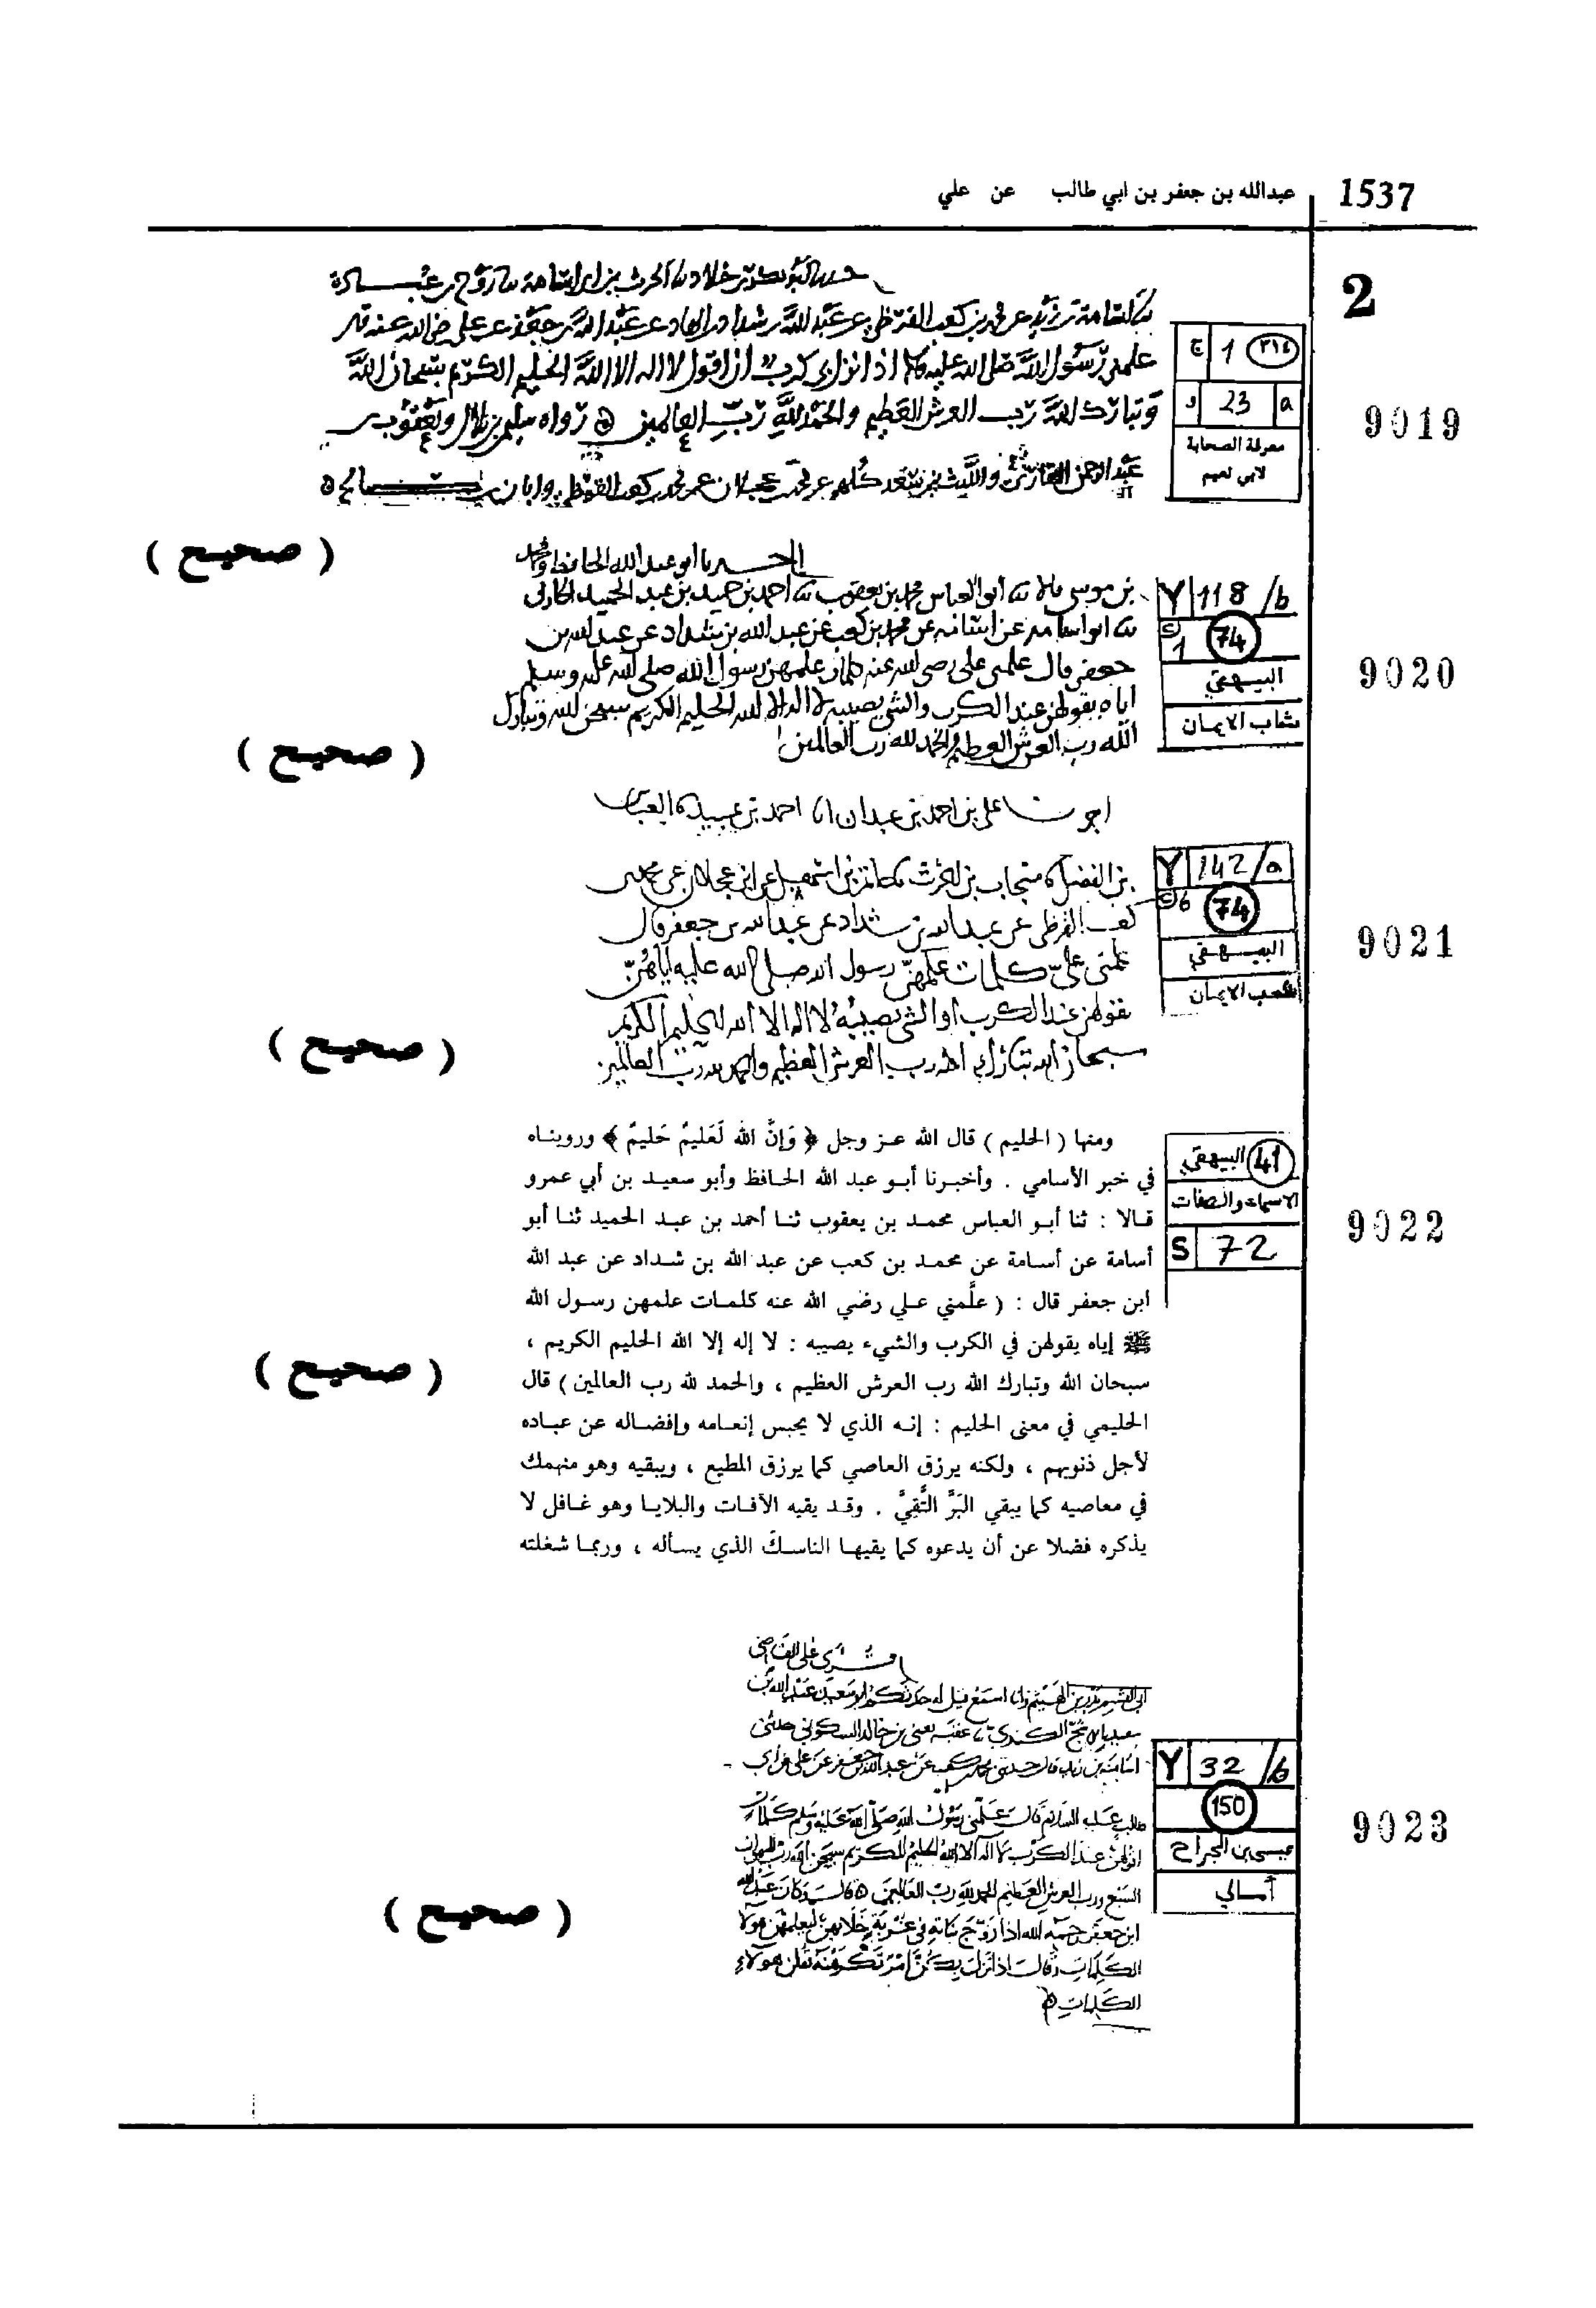 1537 عبدالله بن جعفر بن ابي طالب عن علي
2
حدثنا ابو بكر بن خلاد ثنا الحرث بن ابي اسامة ثنا روح بن عبادة
ثنا اسامة بن زيد عن محمد بن كعب القرظي عن عبد الله بن شداد بن الهاد عن عبد الله بن جعفر عن علي رضي الله عنه قال
علمني رسول الله صلى الله عليه وسلم اذا نزل بي كرب ان اقول لا اله الا الله الحليم الكريم سبحان الله
وتبارك الله رب العرش العظيم والحمد لله رب العالمين رواه سليمن بن بلال ويعقوب بن
عبد الرحمن القارئ والليث بن سعد كلهم عن محمد بن عجلان عن محمد بن كعب القرظي وابان بن صالح
ج 1 ٣١٤
و 23 a
معرفة الصحابة
لابي نعيم
9019
( صحيح )
اخبرنا ابو عبد الله الحافظ ومحمد
بن موسى قالا ثنا ابو العباس محمد بن يعقوب ثنا احمد بن عبد الحميد الحارثي
ثنا ابو اسامة عن اسامة عن محمد بن كعب عن عبد الله بن شداد عن عبد الله بن
جعفر قال علمني علي رضي الله عنه كلمات علمهن رسول الله صلى الله عليه وسلم
اياه يقولهن عند الكرب والشي يصيبه لا اله الا الله الحليم الكريم سبحن الله وتبارك
الله رب العرش العظيم والحمد لله رب العالمين
Y 118 /b
1 74
البيهقي
شاب الايمان
9020
( صحيح )
اخبرنا علي بن احمد بن عبدان انا احمد بن عبيد ثنا العباس
بن الفضل ثنا منجاب بن الحرث ثنا حاتم بن اسمعيل عن ابن عجلان عن محمد بن
كعب القرظي عن عبد الله بن شداد عن عبد الله بن جعفر قال
علمني علي كلمات علمهن رسول الله صلى الله عليه اياهن
يقولهن عند الكرب او الشي يصيبه لا اله الا الله الحليم الكريم
سبحان الله تبارك الله رب العرش العظيم والحمد لله رب العالمين
Y 142/a
6 74
البيهقي
شعب الايمان
9021
( صحيح )
ومنها ( الحليم ) قال الله عز وجل ﴿ وَإنَّ الله لَعَليمٌ حَليمٌ ﴾ ورويناه
في خبر الأسامي . وأخبرنا أبو عبد الله الحافظ وأبو سعيد بن أبي عمرو
قالا : ثنا أبو العباس محمد بن يعقوب ثنا أحمد بن عبد الحميد ثنا أبو
أسامة عن أسامة عن محمد بن كعب عن عبد الله بن شداد عن عبد الله
ابن جعفر قال : ( علَّمني علي رضي الله عنه كلمات علمهن رسول الله
ﷺ إياه يقولهن في الكرب والشيء يصيبه : لا إله إلا الله الحليم الكريم ،
سبحان الله وتبارك الله رب العرش العظيم ، والحمد لله رب العالمين ) قال
الحليمي في معنى الحليم : إنه الذي لا يحبس إنعامه وإفضاله عن عباده
لأجل ذنوبهم ، ولكنه يرزق العاصي كما يرزق المطيع ، ويبقيه وهو منهمك
في معاصيه كما يبقي البَرَّ التَّقِيَّ . وقد يقيه الآفات والبلايا وهو غافل لا
يذكره فضلا عن أن يدعوه كما يقيها الناسكَ الذي يسأله ، وربما شغلته
41 البيهقي
الاسماء والصفات
S 72
9022
( صحيح )
قرئ على القاضي
ابي القسم بدر بن الهيثم وانا اسمع قيل له حدثكم ابو سعيد عبد الله بن
سعيد الاشج الكندي ثنا عقبة يعني بن خالد السكوني حدثني
اسامة بن زيد قال حدثني محمد بن كعب عن عبد الله بن جعفر عن علي بن ابي
طالب عليه السلام قال علمني رسول الله صلى الله عليه وسلم كلمات
اقولهن عند الكرب لا اله الا الله الحليم الكريم سبحن الله رب السموات
السبع ورب العرش العظيم الحمد لله رب العالمين قال وكان عبد الله
ابن جعفر رحمه الله اذا زوج بناته في غربة خلا بهن ليعلمهن هولاء
الكلمات وقال اذا نزل بكن امر تكرهنه فقلن هولاء
الكلمات
Y 32 /b
150
عيسى بن الجراح
أمالي
9023
( صحيح )